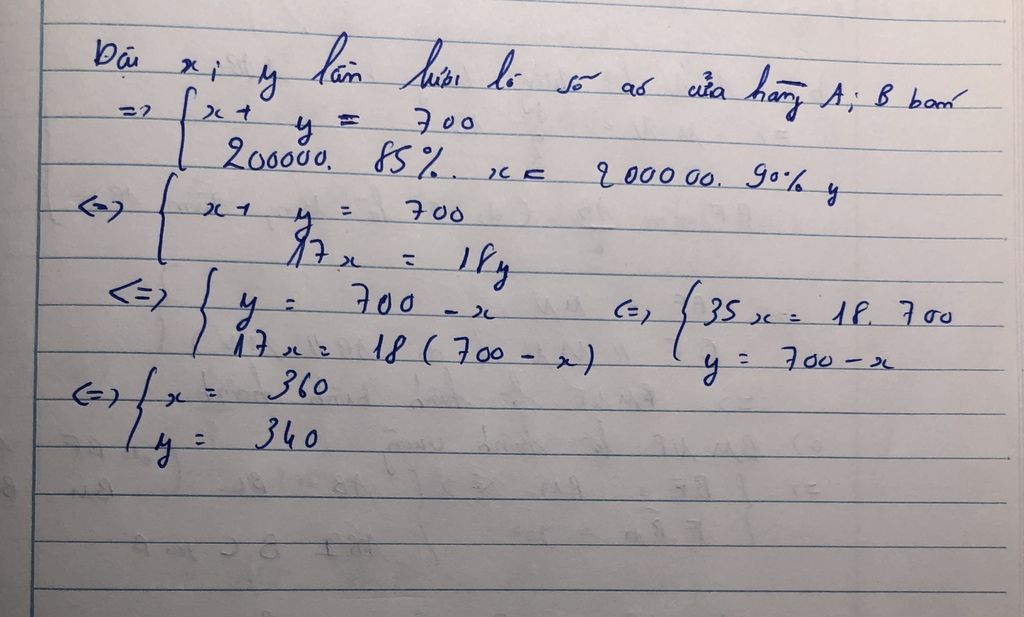 x; y lần lượt là số áo cửa hàng A; B bán
=> { x + y = 700
200000. 85%. x = 200000. 90% y
<=> { x + y = 700
17x = 18y
<=> { y = 700 - x <=> { 35x = 18. 700
17x = 18 (700 - x) y = 700 - x
<=> { x = 360
y = 340